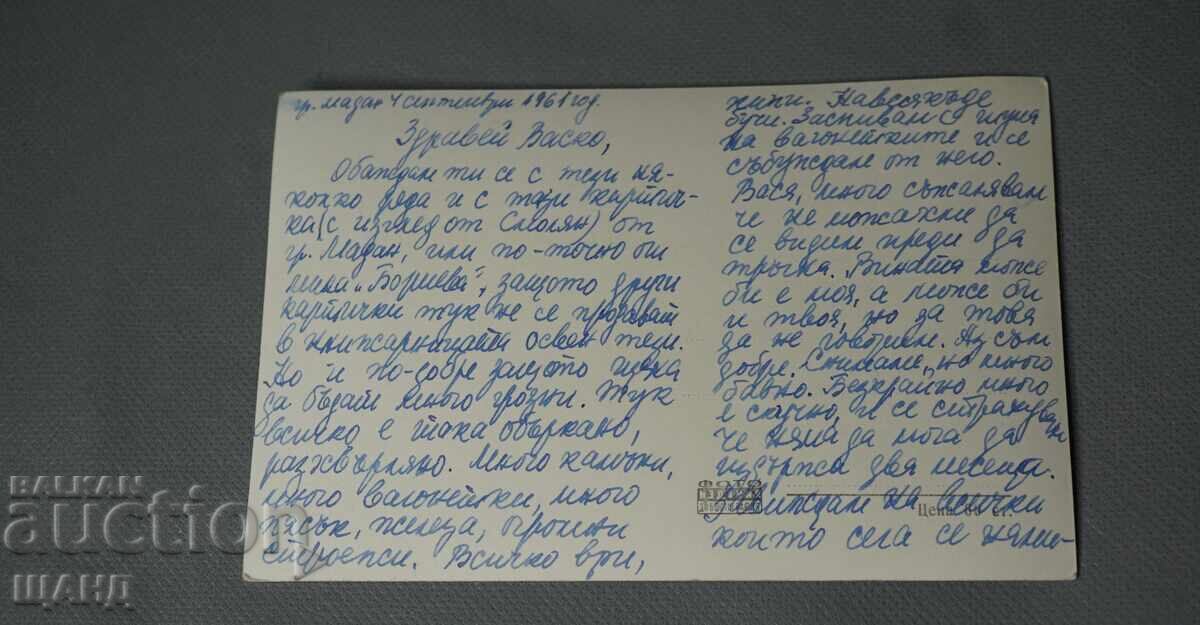 гр. Мадан 4 септември 1961 год.
Здравей Васко,
Обаждам ти се с тези ня-
колко реда и с тази картич-
ка (с изглед от Смолян) от
гр. Мадан, или по-точно от
мина „Бориева", защото други
картички тук не се продават
в книжарницата освен тези.
Но и по-добре защото щяха
да бъдат много грозни. Тук
всичко е така объркано,
разхвърляно. Много камъни,
много вагонетки, много
пясък, железа, огромни
строежи. Всичко ври,
кипи. Навсякъде
бучи. Заспивам с шума
на вагонетките и се
събуждам от него.
Вася, много съжалявам
че не можахме да
се видим преди да
тръгна. Вината може
би е моя, а може би
и твоя, но да това
да не говорим. Аз съм
добре. Снимаме, но много
бавно. Безкрайно много
е скучно, и се страхувам
че няма да мога да
издържа два месеца.
на всички
които сега се
ФОТО
Цена
BALKAN
auction
ШАНД